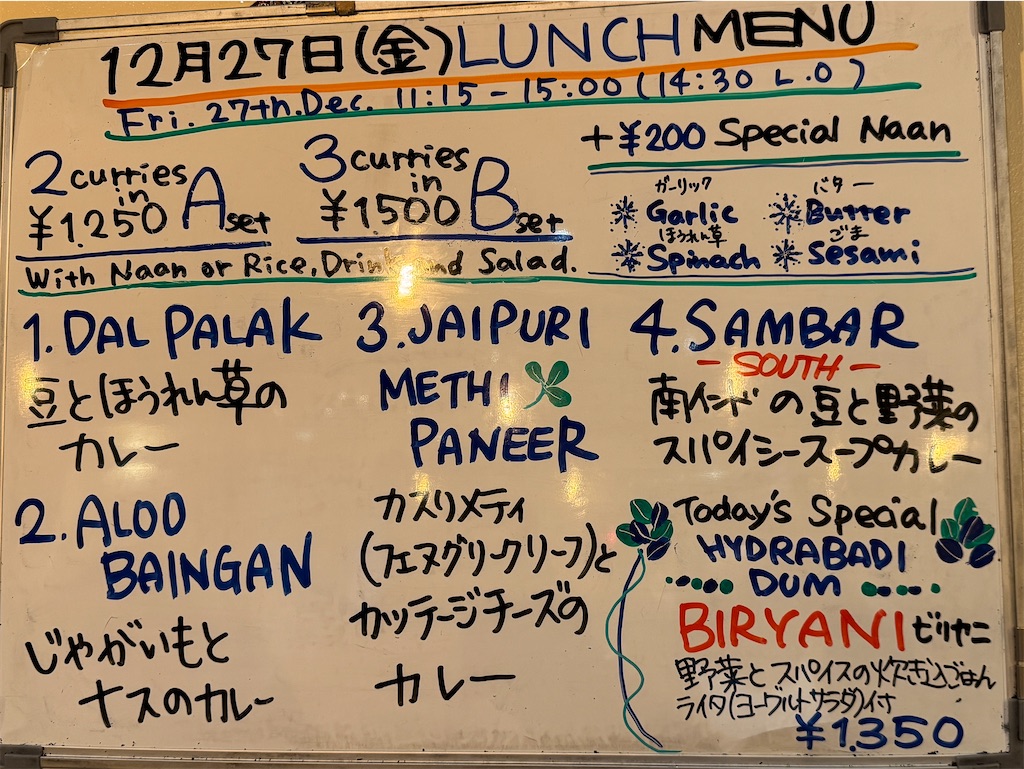 12月27日(金)LUNCH MENU
Fri. 27th. Dec. 11:15 - 15:00 (14:30 L.O)
2 curries
in
¥1.250 A set
3 curries
in
¥1500 B set
With Naan or Rice, Drink and Salad.
+¥200 Special Naan
ガーリック
Garlic
バター
Butter
ほうれん草
Spinach
ごま
Sesami
1. DAL PALAK
豆とほうれん草の
カレー
2. ALOO
BAINGAN
じゃがいもと
ナスのカレー
3. JAIPURI
METHI
PANEER
カスリメティ
(フェヌグリークリーフ)と
カッテージチーズの
カレー
4. SAMBAR
- SOUTH -
南インドの豆と野菜の
スパイシースープカレー
Today's Special
HYDRABADI
DUM
BIRYANI ビリヤニ
野菜とスパイスの炊き込ごはん
ライタ(ヨーグルトサラダ)付
¥1.350